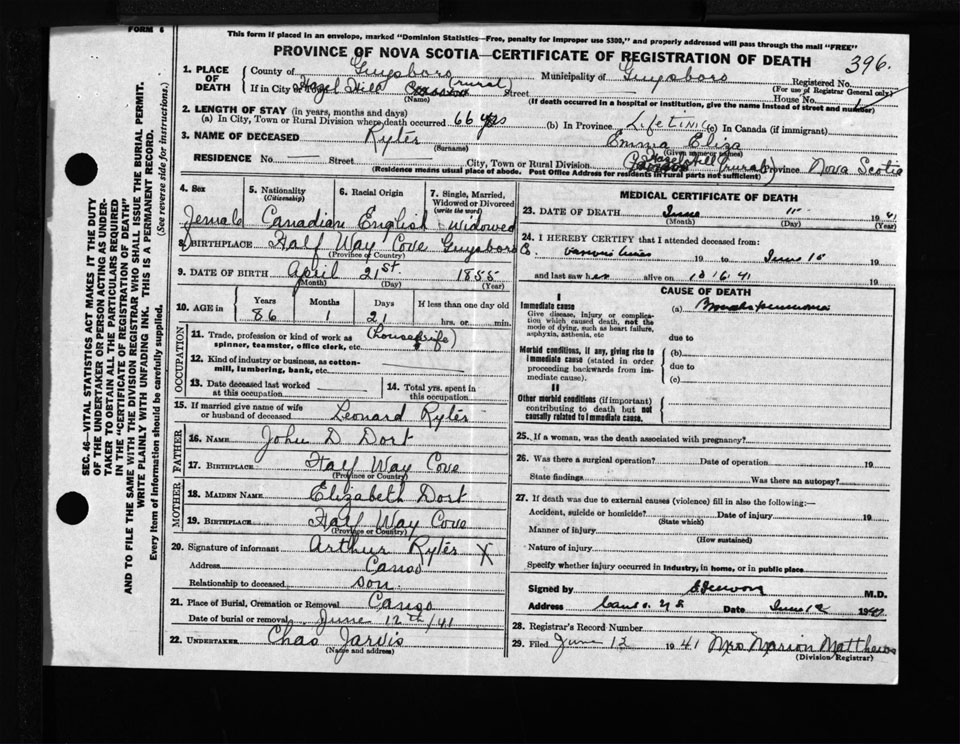 FORM 6
This form if placed in an envelope, marked "Dominion Statistics—Free, penalty for improper use $300," and properly addressed will pass through the mail "FREE"
PROVINCE OF NOVA SCOTIA—CERTIFICATE OF REGISTRATION OF DEATH
396.
1. PLACE OF DEATH
County of Guysboro Municipality of Guysboro Registered No.
(For use of Registrar General only)
If in City or Hazel Hill (rural) Street House No.
(Name) (If death occurred in a hospital or institution, give the name instead of street and number)
2. LENGTH OF STAY (in years, months and days)
(a) In City, Town or Rural Division where death occurred 66 yrs (b) In Province Lifetime (c) In Canada (if immigrant)
3. NAME OF DECEASED Ryter Emma Eliza
(Surname) (Given name or names)
RESIDENCE No. — Street City, Town or Rural Division Hazel Hill (rural) Province Nova Scotia
(Residence means usual place of abode. Post Office Address for residents in rural parts not sufficient)
4. Sex
Female
5. Nationality
(Citizenship)
Canadian
6. Racial Origin
English
7. Single, Married, Widowed or Divorced
(write the word)
Widowed
8. BIRTHPLACE Half Way Cove Guysboro
(Province or Country)
9. DATE OF BIRTH April 21st 1855
(Month) (Day) (Year)
10. AGE in
Years Months Days If less than one day old
86 1 21 hrs. or min.
OCCUPATION
11. Trade, profession or kind of work as spinner, teamster, office clerk, etc. (Housewife)
12. Kind of industry or business, as cotton-mill, lumbering, bank, etc.
13. Date deceased last worked at this occupation
14. Total yrs. spent in this occupation
15. If married give name of wife or husband of deceased Leonard Ryter
FATHER
16. NAME John D. Dort
17. BIRTHPLACE Half Way Cove
(Province or Country)
MOTHER
18. MAIDEN NAME Elizabeth Dort
19. BIRTHPLACE Half Way Cove
(Province or Country)
20. Signature of informant Arthur Ryter X
Address Canso
Relationship to deceased son.
21. Place of Burial, Cremation or Removal Canso
Date of burial or removal June 12th/41
22. UNDERTAKER Chas Jarvis
(Name and address)
MEDICAL CERTIFICATE OF DEATH
23. DATE OF DEATH June 11 1941
(Month) (Day) (Year)
24. I HEREBY CERTIFY that I attended deceased from:
various times 19 to June 10 19
and last saw her alive on 10 16 41
CAUSE OF DEATH
I
Immediate cause
Give disease, injury or complication which caused death, not the mode of dying, such as heart failure, asphyxia, asthenia, etc
(a)
due to
Morbid conditions, if any, giving rise to immediate cause (stated in order proceeding backwards from immediate cause).
(b)
due to
(c)
II
Other morbid conditions (if important) contributing to death but not causally related to immediate cause.
25. If a woman, was the death associated with pregnancy?
26. Was there a surgical operation? Date of operation 19
State findings Was there an autopsy?
27. If death was due to external causes (violence) fill in also the following:—
Accident, suicide or homicide? Date of injury 19
(State which)
Manner of injury
(How sustained)
Nature of injury
Specify whether injury occurred in industry, in home, or in public place
Signed by M.D.
Address Canso. N.S. Date June 12 194
28. Registrar's Record Number
29. Filed June 12 1941 Mrs Marion Matthews
(Division Registrar)
SEC. 46—VITAL STATISTICS ACT MAKES IT THE DUTY
OF THE UNDERTAKER OR PERSON ACTING AS UNDER-
TAKER TO OBTAIN ALL THE PARTICULARS REQUIRED
IN THE "CERTIFICATE OF REGISTRATION OF DEATH"
AND TO FILE THE SAME WITH THE DIVISION REGISTRAR WHO SHALL ISSUE THE BURIAL PERMIT.
WRITE PLAINLY WITH UNFADING INK. THIS IS A PERMANENT RECORD.
Every item of information should be carefully supplied. (See reverse side for instructions.)